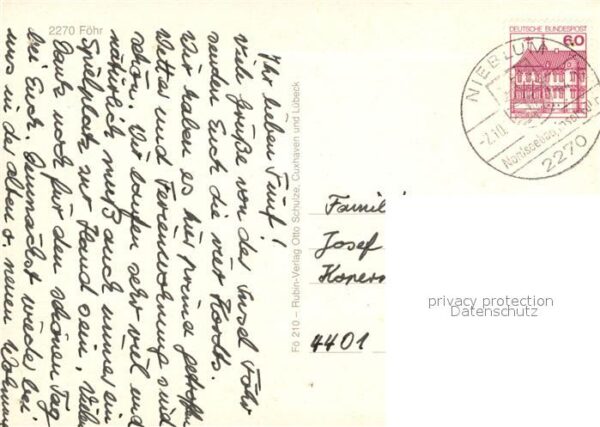 2270 Föhr
Ihr lieben Fünf!
Viele Grüße von der Insel Föhr
senden Euch die vier
Wir haben es hier prima getroffen
Wetter und Ferienwohnung sind
schön. Wir laufen sehr viel und
natürlich muß auch immer ein
Spielplatz zur Hand sein. Vielen
Dank noch für den schönen Tag
bei Euch. Demnächst wieder bei
uns in der alten o. neuen Wohnung
Fö 210 – Rubin-Verlag Otto Schulze, Cuxhaven und Lübeck
DEUTSCHE BUNDESPOST
60
NIEBLUM
Nordseebad
2270
Famil
Josef
Kopern
4401
privacy protection
Datenschutz